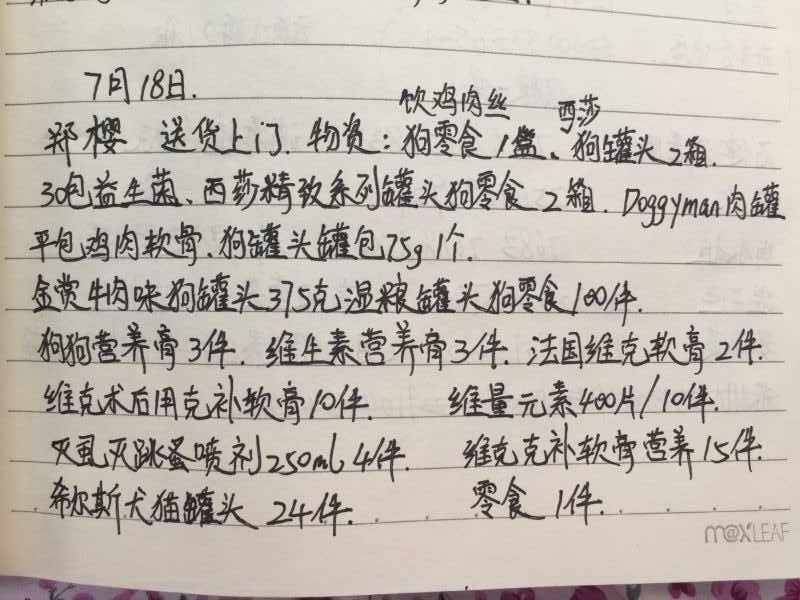 7月18日.
饮鸡肉丝 西莎
郑樱 送货上门. 物资:狗零食1盒、狗罐头2箱.
30包益生菌、西莎精致系列罐头狗零食2箱. Doggyman肉罐
平包鸡肉软骨.狗罐头罐包75g1个.
金赏牛肉味狗罐头375克湿粮罐头狗零食100件.
狗狗营养膏3件. 维生素营养膏3件. 法国维克软膏2件.
维克术后用克补软膏10件. 维量元素400片/10件.
灭虱灭跳蚤喷剂250ml 4件. 维克克补软膏营养15件.
希尔斯犬猫罐头 24件. 零食 1件.
m@x'LEAF